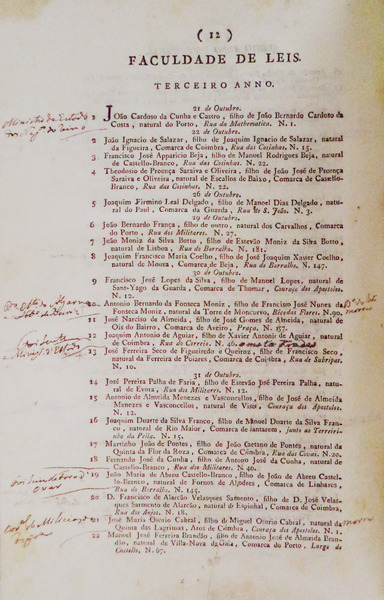 ( 12 )
FACULDADE DE LEIS.
TERCEIRO ANNO.
21 de Outubro.
1 JOão Cardoso da Cunha e Castro, filho de João Bernardo Cardoso da
Costa, natural do Porto, Rua da Mathematica. N. 1.
22 de Outubro.
2 João Ignacio de Salazar, filho de Joaquim Ignacio de Salazar, natural
da Figueira, Comarca de Coimbra, Rua das Cosinhas. N. 15.
3 Francisco José Apparicio Beja, filho de Manoel Rodrigues Beja, natural
de Castello-Branco, Rua das Cosinhas. N. 22.
4 Theodosio de Proença Saraiva e Oliveira, filho de João José de Proença
Saraiva e Oliveira, natural de Escallos de Baixo, Comarca de Castello-
Branco, Rua das Cosinhas. N. 22.
26 de Outubro.
5 Joaquim Firmino Leal Delgado, filho de Manoel Dias Delgado, natu-
ral do Paul, Comarca da Guarda, Rua de S. João. N. 3.
29 de Outubro.
6 João Bernardo França, filho de outro, natural dos Carvalhos, Comarca
do Porto, Rua dos Militares. N. 27.
7 João Moniz da Silva Botto, filho de Estevão Moniz da Silva Botto,
natural de Lisboa, Rua do Borralho. N. 181.
8 Joaquim Francisco Maria Coelho, filho de José Joaquim Xavier Coelho,
natural de Moura, Comarca de Beja, Rua do Borralho. N. 147.
30 de Outubro.
9 Francisco José Lopes da Silva, filho de Manoel Lopes, natural de
Sant-Yago da Guarda, Comarca de Thomar, Couraça dos Apostolos.
N. 12.
10 Antonio Bernardo da Fonseca Moniz, filho de Francisco José Nunes da
Fonseca Moniz, natural da Torre de Moncorvo, Flores. N. 90.
11 José Narciso de Almeida, filho de José Gomes de Almeida, natural de
Ois do Bairro, Comarca de Aveiro, Praça. N. 157.
12 Joaquim Antonio de Aguiar, filho de Xavier Antonio de Aguiar, natural
de Coimbra, Rua do Correio. N. 40.
13 José Ferreira Seco de Figueirêdo e Queiroz, filho de Francisco Seco,
natural da Ferreira de Poiares, Comarca de Coimbra, Rua de Subripas.
N. 10.
31 de Outubro.
14 José Pereira Palha de Faria, filho de Estevão José Pereira Palha, natu-
ral de Evora, Rua dos Militares. N. 12.
15 Antonio de Almeida Menezes e Vasconcellos, filho de José de Almeida
Menezes e Vasconcellos, natural de Viseu, Couraça dos Apostolos.
N. 12.
16 Joaquim Duarte da Silva Franco, filho de Manoel Duarte da Silva Fran-
co, natural de Rio Maior, Comarca de Santarem, junto ao Terreiri-
nho da Pella. N. 15.
17 Martinho João de Pontes, filho de João Caetano de Pontes, natural da
Quinta da Flor da Roza, Comarca de Coimbra, Rua das Covas. N. 20.
18 Fernando José da Cunha, filho de Antonio José da Cunha, natural de
Castello-Branco, Rua dos Militares. N. 40.
19 João Maria de Abreu Castello-Branco, filho de João de Abreu Castel-
lo-Branco, natural de Fornos de Algodres, Comarca de Linhares,
Rua do Borralho. N. 145.
20 D. Francisco de Alarcão Velasques Sarmento, filho de D. José Velas-
ques Sarmento de Alarcão, natural de Espinhal, Comarca de Coimbra,
Rua dos Anjos. N. 18.
21 José Maria Ozorio Cabral, filho de Miguel Ozorio Cabral, natural da
Quinta das Lagrimas, Atros de Coimbra, Couraça dos Apostolos. N. 1.
22 Manoel José Ferreira Brandão, filho de Antonio José de Almeida Bran-
dão, natural de Villa-Nova da Gaia, Comarca do Porto, Largo do
Castello, N. 67.